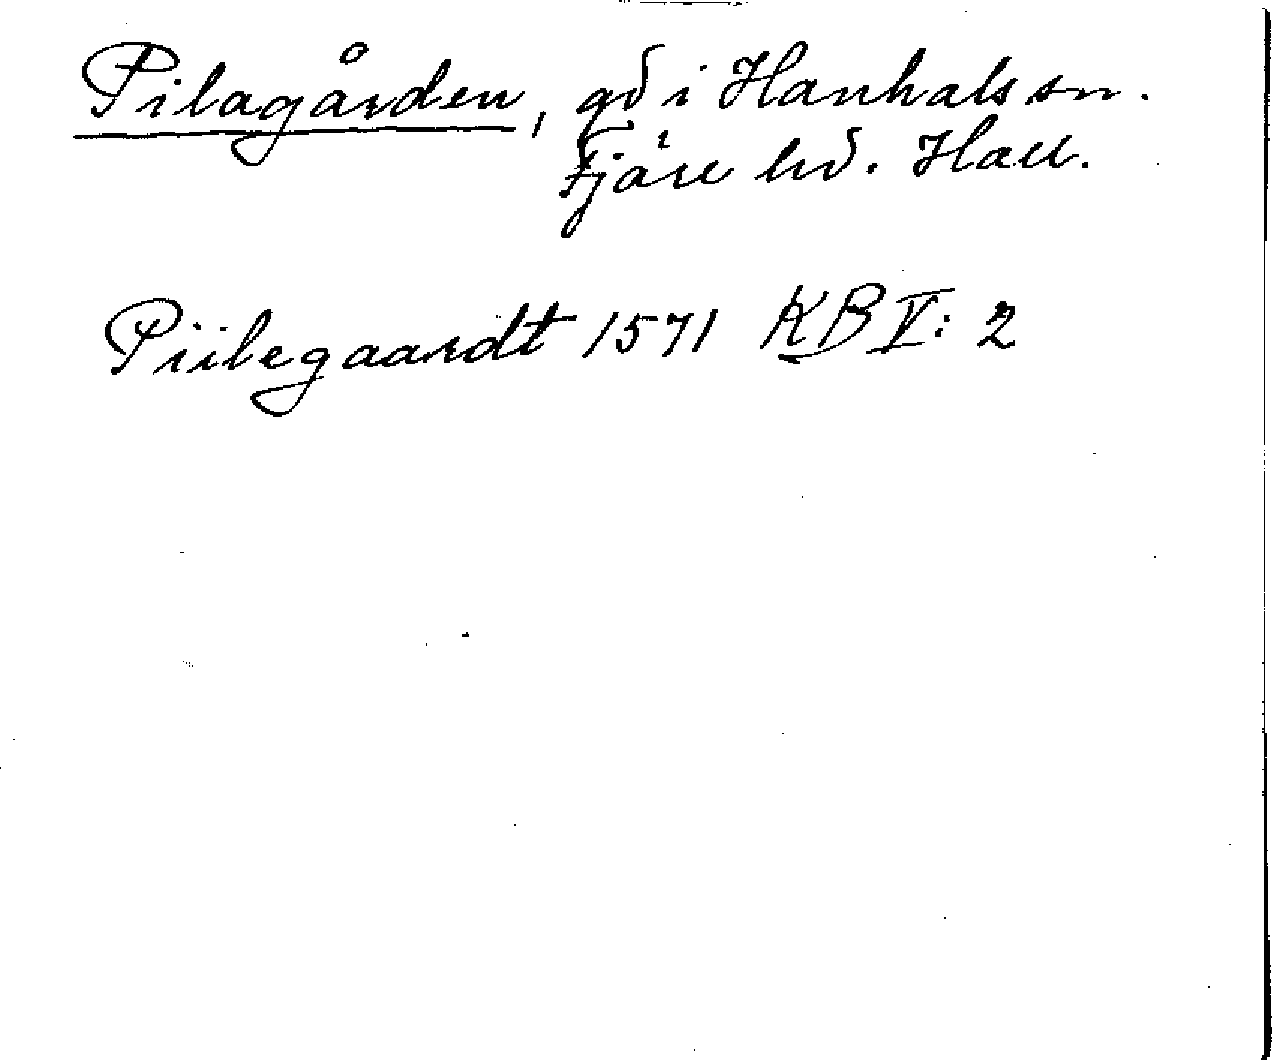 Pilagården, gd i Hanhals sn.
Fjäre hd. Hall.
Piilegaardt 1571 KB V: 2